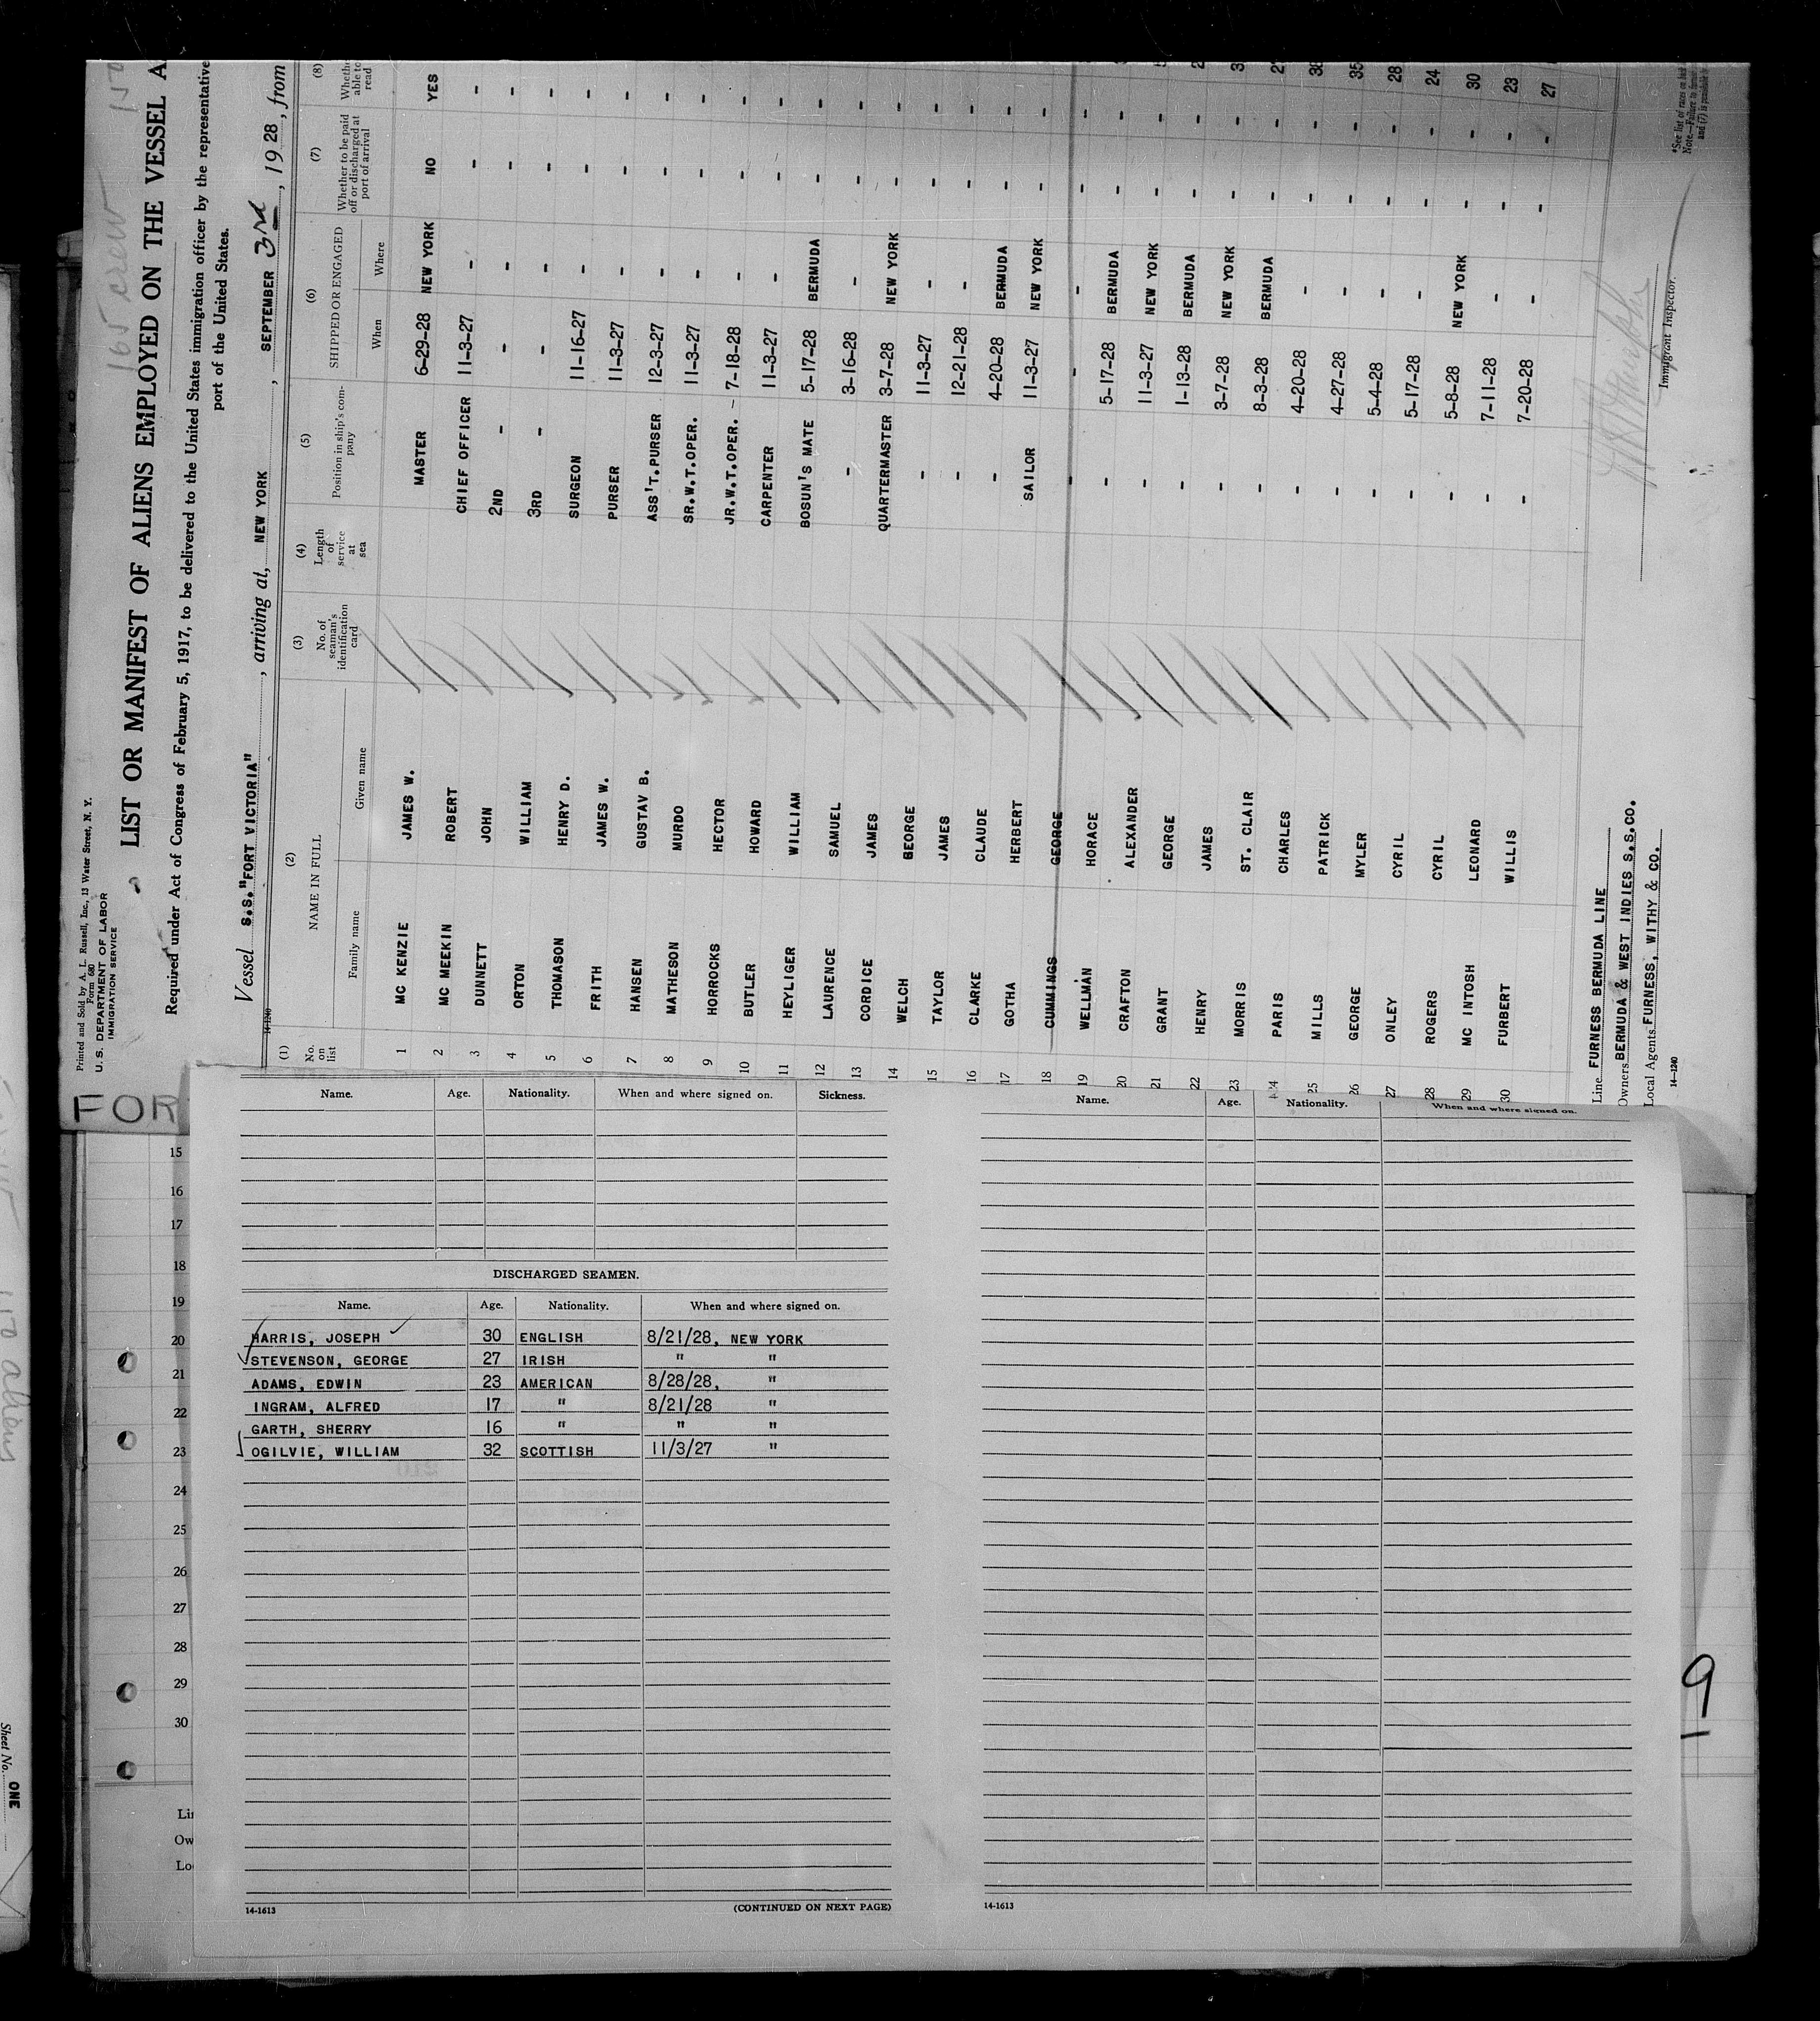 165 crew
Printed and Sold by A. L. Russell, Inc., 13 Water Street, N. Y.
Form 680
U. S. DEPARTMENT OF LABOR
IMMIGRATION SERVICE
LIST OR MANIFEST OF ALIENS EMPLOYED ON THE VESSEL A
Required under Act of Congress of February 5, 1917, to be delivered to the United States immigration officer by the representative
port of the United States.
Vessel S.S."FORT VICTORIA" , arriving at, NEW YORK , SEPTEMBER 3rd , 1928, from
14-1240
(1) (2) (3) (4) (5) (6) (7) (8)
No. on list NAME IN FULL No. of seaman's identification card Length of service at sea Position in ship's company SHIPPED OR ENGAGED Whether to be paid off or discharged at port of arrival Whether able to read
Family name Given name When Where
1 MC KENZIE JAMES W. MASTER 6-29-28 NEW YORK NO YES
2 MC MEEKIN ROBERT CHIEF OFFICER 11-3-27 - - -
3 DUNNETT JOHN 2ND - - - - -
4 ORTON WILLIAM 3RD - - - - -
5 THOMASON HENRY D. SURGEON 11-16-27 - - -
6 FRITH JAMES W. PURSER 11-3-27 - - -
7 HANSEN GUSTAV B. ASS'T.PURSER 12-3-27 - - -
8 MATHESON MURDO SR.W.T.OPER. 11-3-27 - - -
9 HORROCKS HECTOR JR.W.T.OPER. 7-18-28 - - -
10 BUTLER HOWARD CARPENTER 11-3-27 - - -
11 HEYLIGER WILLIAM BOSUN'S MATE 5-17-28 BERMUDA - -
12 LAURENCE SAMUEL - 3-16-28 - - -
13 CORDICE JAMES QUARTERMASTER 3-7-28 NEW YORK - -
14 WELCH GEORGE - 11-3-27 - - -
15 TAYLOR JAMES - 12-21-28 - - -
16 CLARKE CLAUDE - 4-20-28 BERMUDA - -
17 GOTHA HERBERT SAILOR 11-3-27 NEW YORK - -
18 CUMMINGS GEORGE - - - - -
19 WELLMAN HORACE - 5-17-28 BERMUDA - -
20 CRAFTON ALEXANDER - 11-3-27 NEW YORK - -
21 GRANT GEORGE - 1-13-28 BERMUDA - -
22 HENRY JAMES - 3-7-28 NEW YORK - -
23 MORRIS ST. CLAIR - 8-3-28 BERMUDA - -
24 PARIS CHARLES - 4-20-28 - - -
25 MILLS PATRICK - 4-27-28 - - - 35
26 GEORGE MYLER - 5-4-28 - - - 28
27 ONLEY CYRIL - 5-17-28 - - - 24
28 ROGERS CYRIL - 5-8-28 NEW YORK - - 30
29 MC INTOSH LEONARD - 7-11-28 - - - 23
30 FURBERT WILLIS - 7-20-28 - - - 27
Line FURNESS BERMUDA LINE
Owners BERMUDA & WEST INDIES S.S.CO.
Local Agents FURNESS, WITHY & CO.
14-1240
Immigrant Inspector.
*See list of races on back
Note.—Failure to
and (7) is punishable
FOR
Name. Age. Nationality. When and where signed on. Sickness.
DISCHARGED SEAMEN.
Name. Age. Nationality. When and where signed on.
HARRIS, JOSEPH 30 ENGLISH 8/21/28, NEW YORK
STEVENSON, GEORGE 27 IRISH " "
ADAMS, EDWIN 23 AMERICAN 8/28/28, "
INGRAM, ALFRED 17 " 8/21/28 "
GARTH, SHERRY 16 " " "
OGILVIE, WILLIAM 32 SCOTTISH 11/3/27 "
14-1613
(CONTINUED ON NEXT PAGE)
Name. Age. Nationality. When and where signed on.
14-1613
15
16
17
18
19
20
21
22
23
24
25
26
27
28
29
30
Li
Ow
Lo
9
aliens
Sheet No. ONE